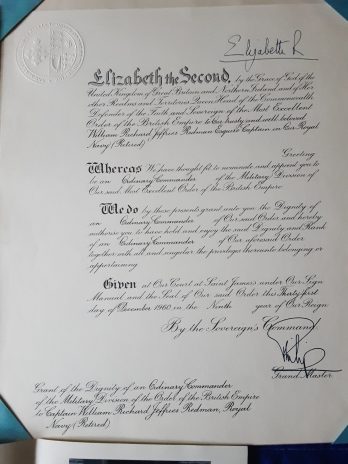 Elizabeth R
Elizabeth the Second, by the Grace of God of the
United Kingdom of Great Britain and Northern Ireland and of Her
other Realms and Territories Queen, Head of the Commonwealth,
Defender of the Faith and Sovereign of the Most Excellent
Order of the British Empire to Our trusty and well beloved
William Richard Jeffries Redman Esquire Captain in Our Royal
Navy (Retired)
Greeting
Whereas We have thought fit to nominate and appoint you to
be an Ordinary Commander of the Military Division of
Our said Most Excellent Order of the British Empire
We do by these presents grant unto you the Dignity of
an Ordinary Commander of Our said Order and hereby
authorise you to have hold and enjoy the said Dignity and Rank
of an Ordinary Commander of Our aforesaid Order
together with all and singular the privileges thereunto belonging or
appertaining.
Given at Our Court at Saint James's under Our Sign
Manual and the Seal of Our said Order this Thirty-first
day of December 1960 in the Ninth year of Our Reign
By the Sovereign's Command.
Philip
Grand Master
Grant of the Dignity of an Ordinary Commander
of the Military Division of the Order of the British Empire
to Captain William Richard Jeffries Redman, Royal
Navy (Retired)